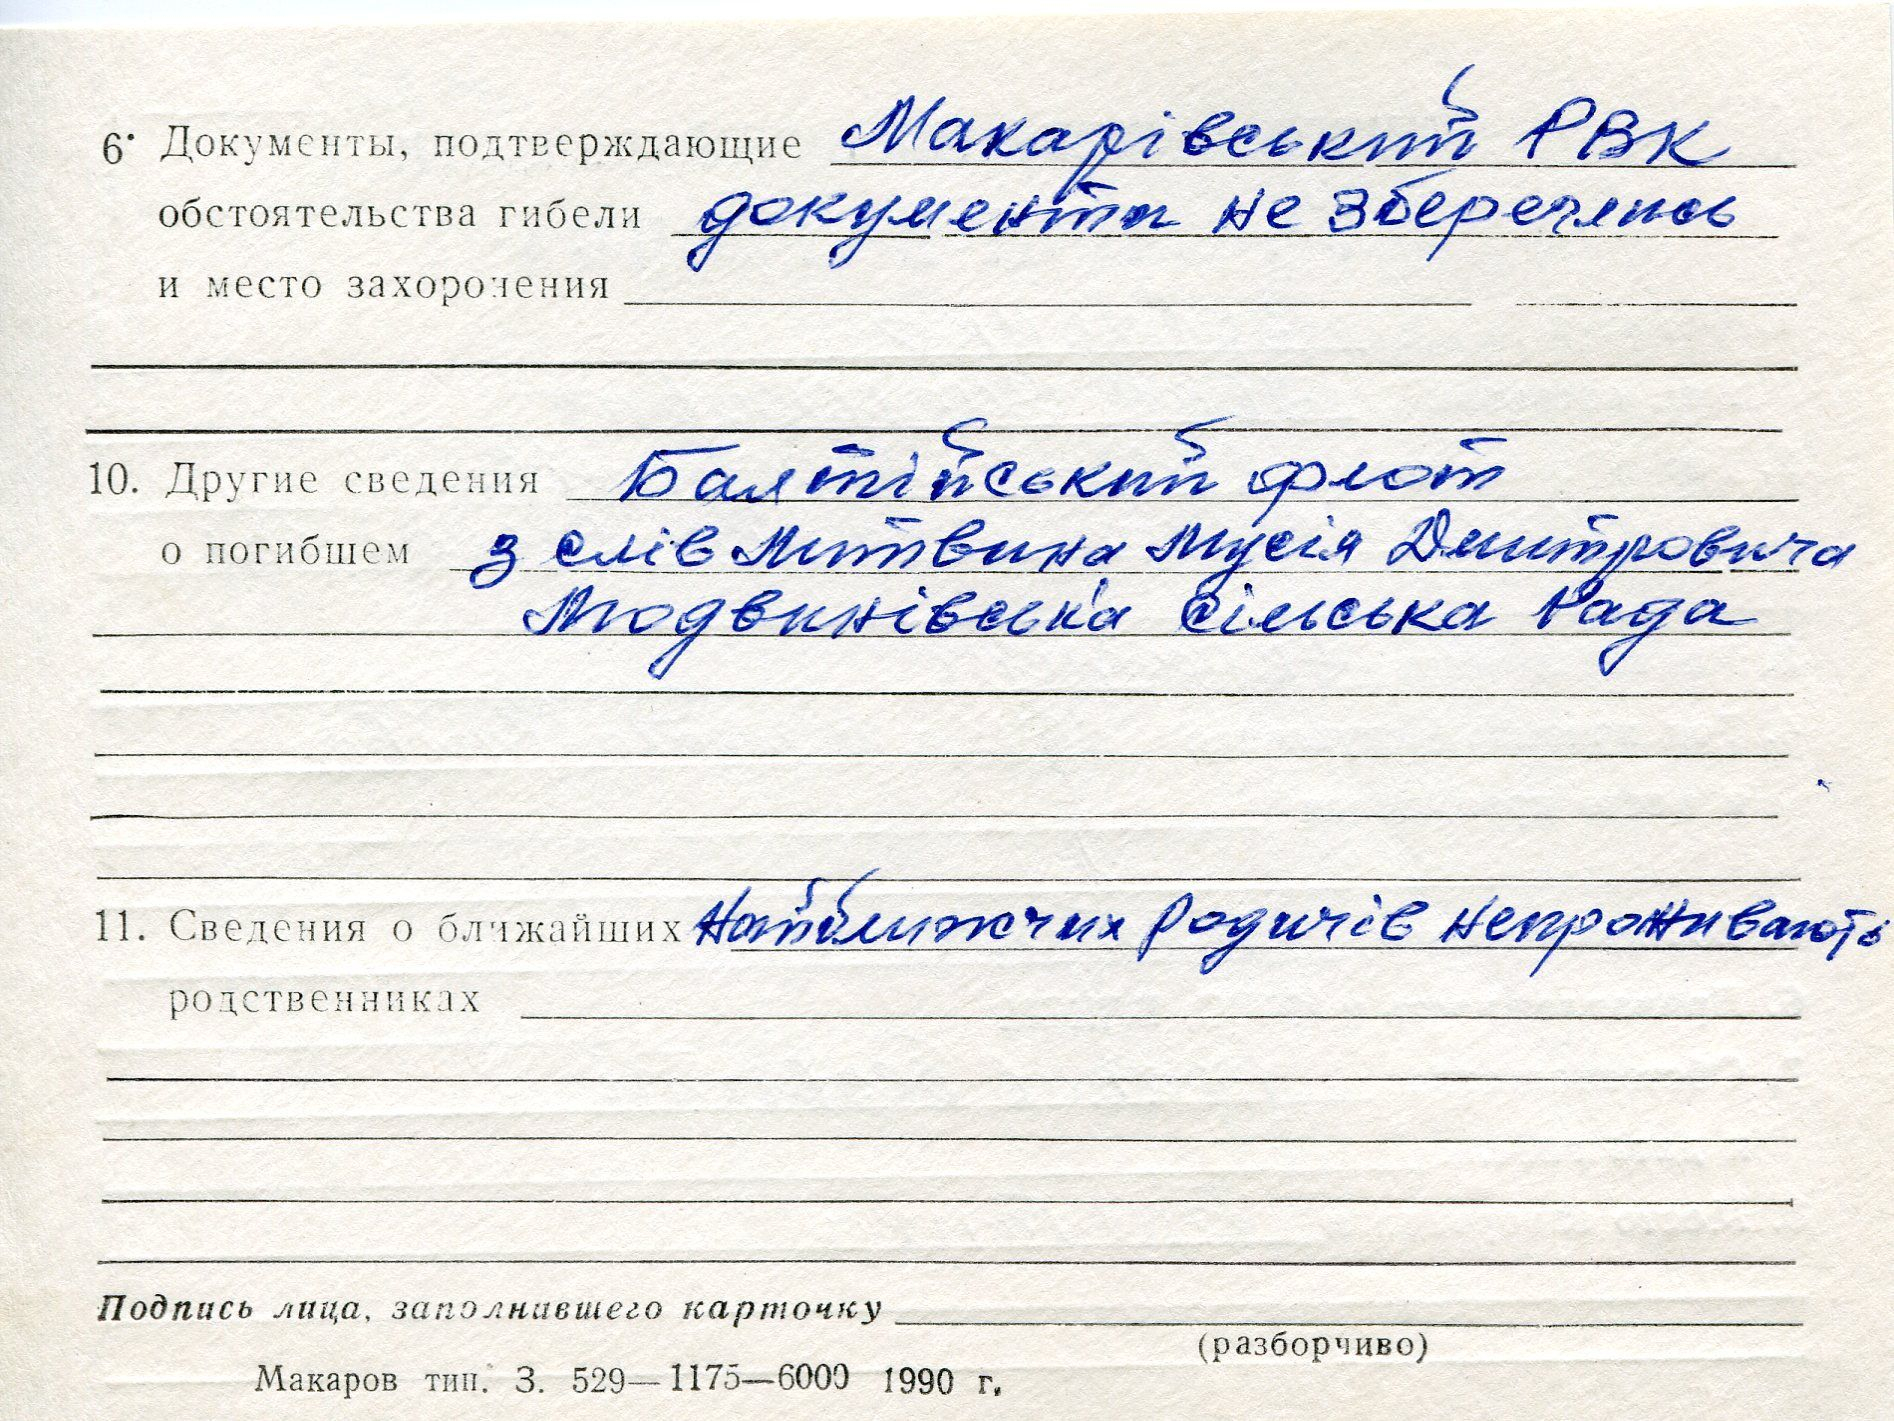 6. Документы, подтверждающие Макарівський РВК
обстоятельства гибели документи не збереглись
и место захоронения
10. Другие сведения Балтійський флот
о погибшем з слів Литвина Мусія Дмитровича
Модвинівська сільська Рада
11. Сведения о ближайших Найближчих родичів непроживають
родственниках
Подпись лица, заполнившего карточку
(разборчиво)
Макаров тип. З. 529—1175—6000 1990 г.